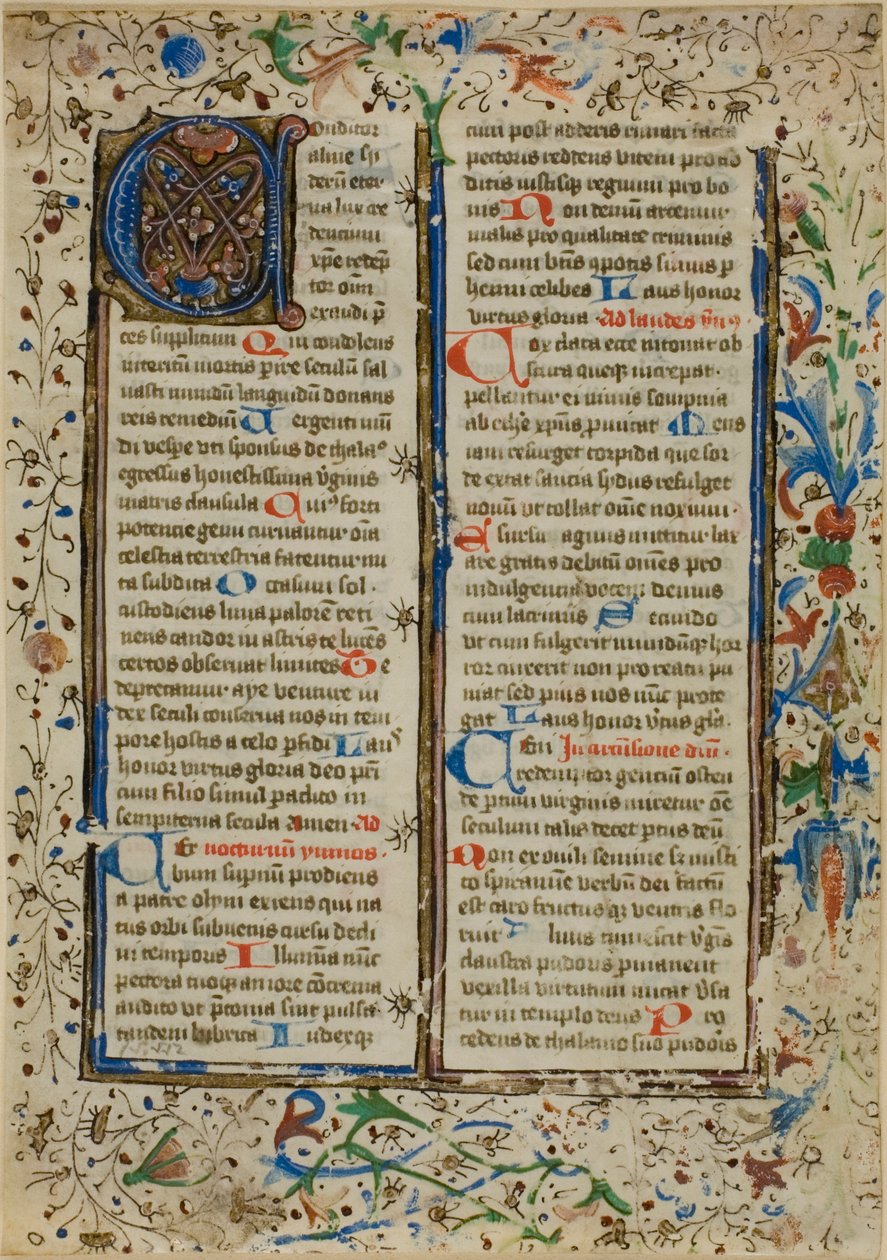 Conditor
alme sy
derū eter
na lux cre
dentium
xp̄e redēp
tor om̄
exaudi p̄
ces supplicum Qui condolens
interitu mortis p̄ire seculum sal
uasti mundū languidū donans
reis remediū Vergente mun
di vesp̄e vti sponsus de thalaᵒ
egressus honestissima v̄ginis
matris clausula Cuiꝰ forti
potencie genu curuantur oīa
celestia terrestria fatentur nu
tu subdita Occasum sol
custodiens luna palorē reti
nens candor in astris te lucēs
certos obseruat limites Te
deprecamur aye venture iu
dex seculi conserua nos in tem
pore hostis a telo p̄fidi Lauˢ
honor virtus gloria deo p̄ri
cum filio simul p̄aclito in
sempiterna secula amen Ad
Ver nocturnū ymnos
bum sup̄nū prodiens
a patre olym exiens qui na
tus orbi subuenis cursu decli
ui temporis Illumīa nūc
pectora tuoqꝫ amore cōcrema
audito vt p̄conia sint pulsa
tandem lubrica Iudexqꝫ
cum post adderis rimari facta
pectoris reddens vicem pro ab
ditis iustisqꝫ regnum pro bo
nis Non demū artemur
malis pro qualitate criminis
sed cum btīs 9potes simus p
henni celibes Laus honor
virtus gloria Ad laudes ymꝰ
Vox clara ecce intonat ob
scura queqꝫ increpat
pellantur eminus sompnia
ab eth̄e xp̄us p̄micat Mens
iam resurget torpida que sor
de extat saucia sydus refulget
nouū vt tollat om̄e noxium
E sursū agnus mittitur lax
are gratis debitū om̄es pro
indulgencia vocem demus
cum lacrimis Secundo
vt cum fulgerit mundūqꝫ hor
ror cinxerit non pro reatu pu
niat sed pius nos nūc prote
gat Laus honor v̄tus gla
Veni In
redemptor gencium osten
de partum virginis miretur om̄e
seculum talis decet p̄tus deū
Non ex virili semine sꝫ misti
co spiramīe verbū dei factū
est caro fructus qꝫ ventris flo
ruit Aluus tumescit v̄gīs
claustra pudoris p̄manent
vexilla virtutum micant v̄sa
tur in templo deus Pro
cedens de thalamo suo pudoris